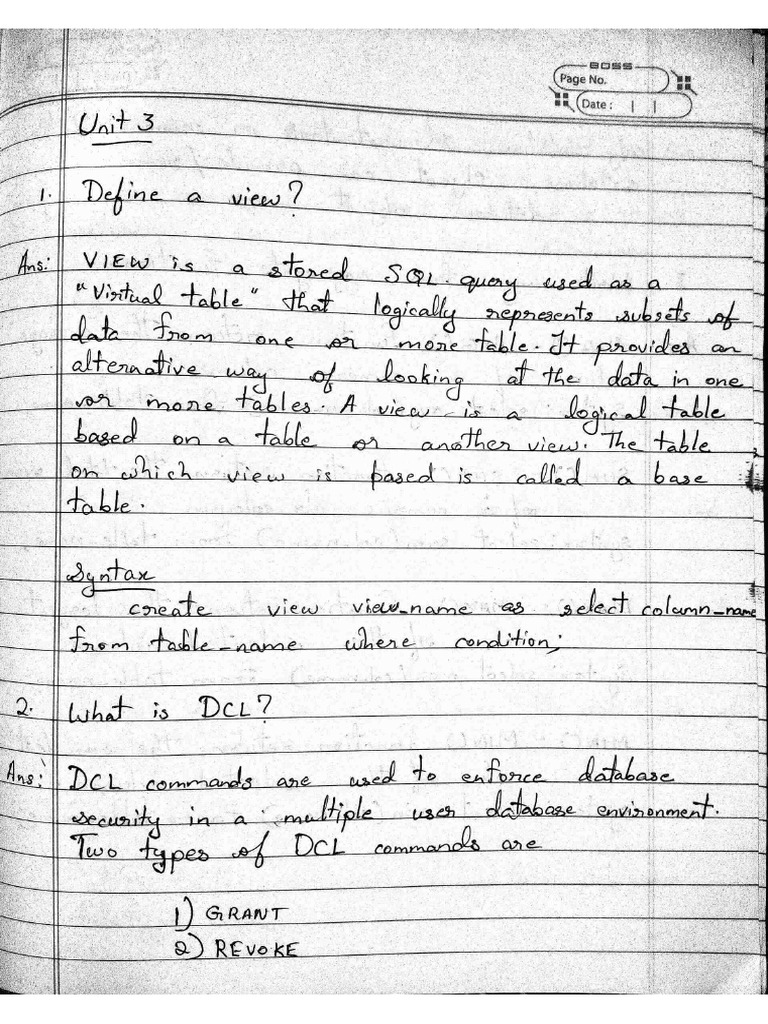 BOSS
Page No.
Date :
Unit 3
1. Define a view?
Ans: VIEW is a stored SQL query used as a
"Virtual table" that logically represents subsets of
data from one or more table. It provides an
alternative way of looking at the data in one
or more tables. A view is a logical table
based on a table or another view. The table
on which view is based is called a base
table.
Syntax
create view view_name as select column_name
from table_name where condition;
2. What is DCL?
Ans: DCL commands are used to enforce database
security in a multiple user database environment.
Two types of DCL commands are
1) GRANT
2) REVOKE